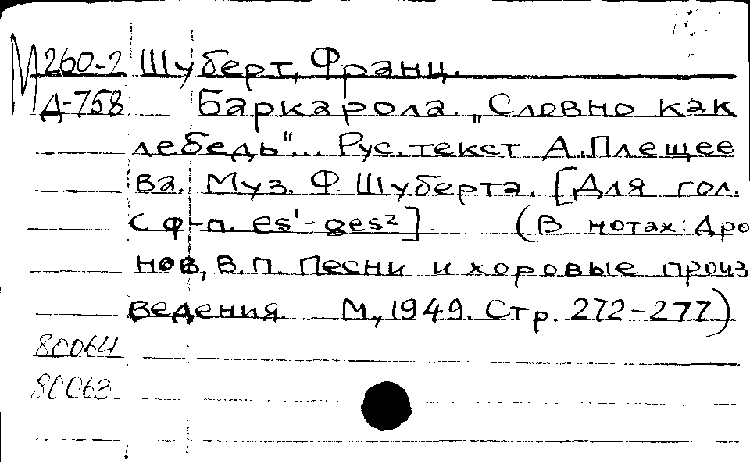 М 260-2 Шуберт, Франц.
Д-758 Баркарола. „Словно как
лебедь"... Рус. текст А. Плещее
ва. Муз. Ф. Шуберта. [Для гол.
с ф-п. es¹-ges²] (В нотах: Дро
нов, В.П. Песни и хоровые произ
ведения. М., 1949. Стр. 272-277)
80064
80063